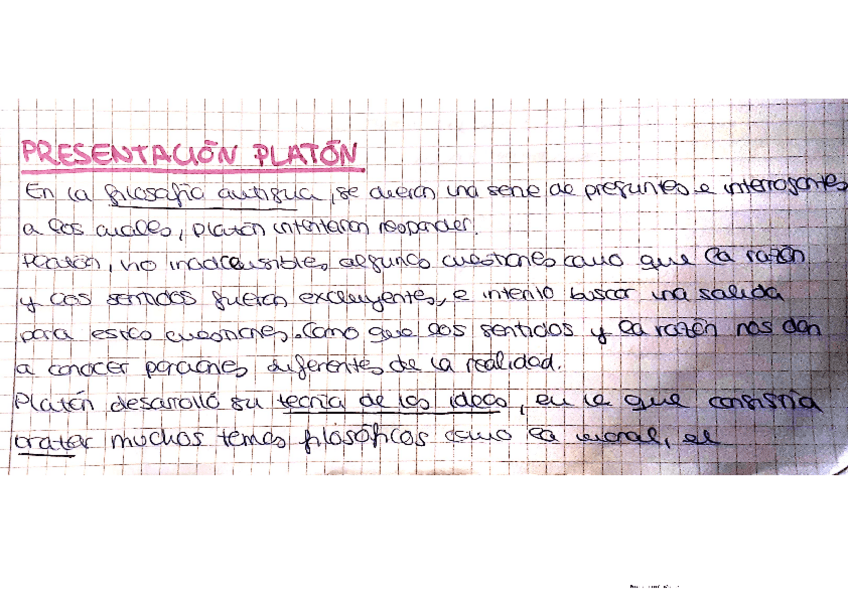 PRESENTACIÓN PLATÓN
En la filosofía antigua, se dieron una serie de preguntas e interrogantes
a los cuales, Platón intentaron responder.
Platón, vio inadmisibles algunas cuestiones como que la razón
y los sentidos fueran excluyentes, e intentó buscar una salida
para estas cuestiones. Como que los sentidos y la razón nos dan
a conocer porciones diferentes de la realidad.
Platón desarolló su teoría de las ideas, en la que consistía
tratar muchos temas filosóficos como la moral, el